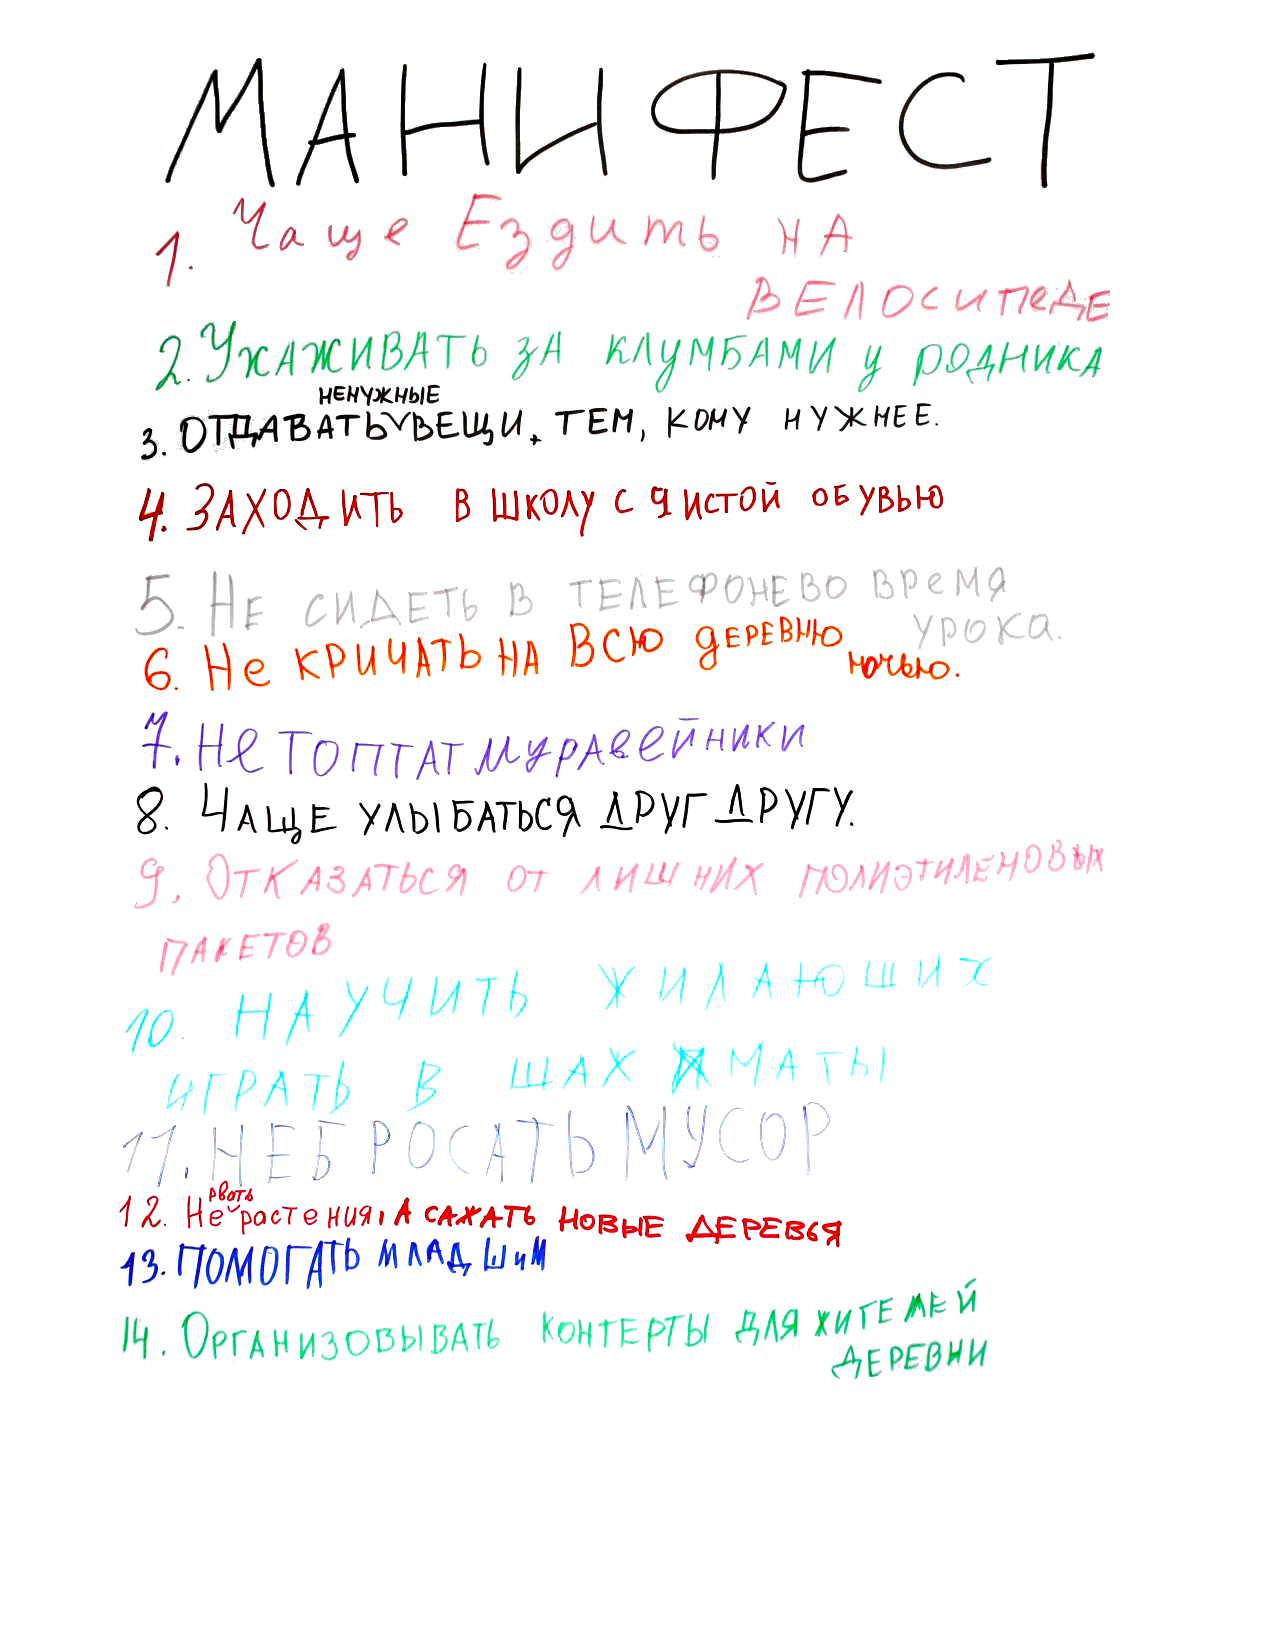 МАНИФЕСТ
1. Чаще Ездить на
велосипеде
2. Ухаживать за клумбами у родника
ненужные
3. Отдавать вещи, тем, кому нужнее.
4. Заходить в школу с чистой обувью
5. Не сидеть в телефоне во время
урока.
6. Не кричать на всю деревню
ночью.
7. Не топтат муравейники
8. Чаще улыбаться друг другу.
9. Отказаться от лишних полиэтиленовых
пакетов
10. Научить жилающих
играть в шахматы
11. Не бросать мусор
рвать
12. Не растения, а сажать новые деревья
13. Помогать младшим
14. Организовывать контерты для жителей
деревни